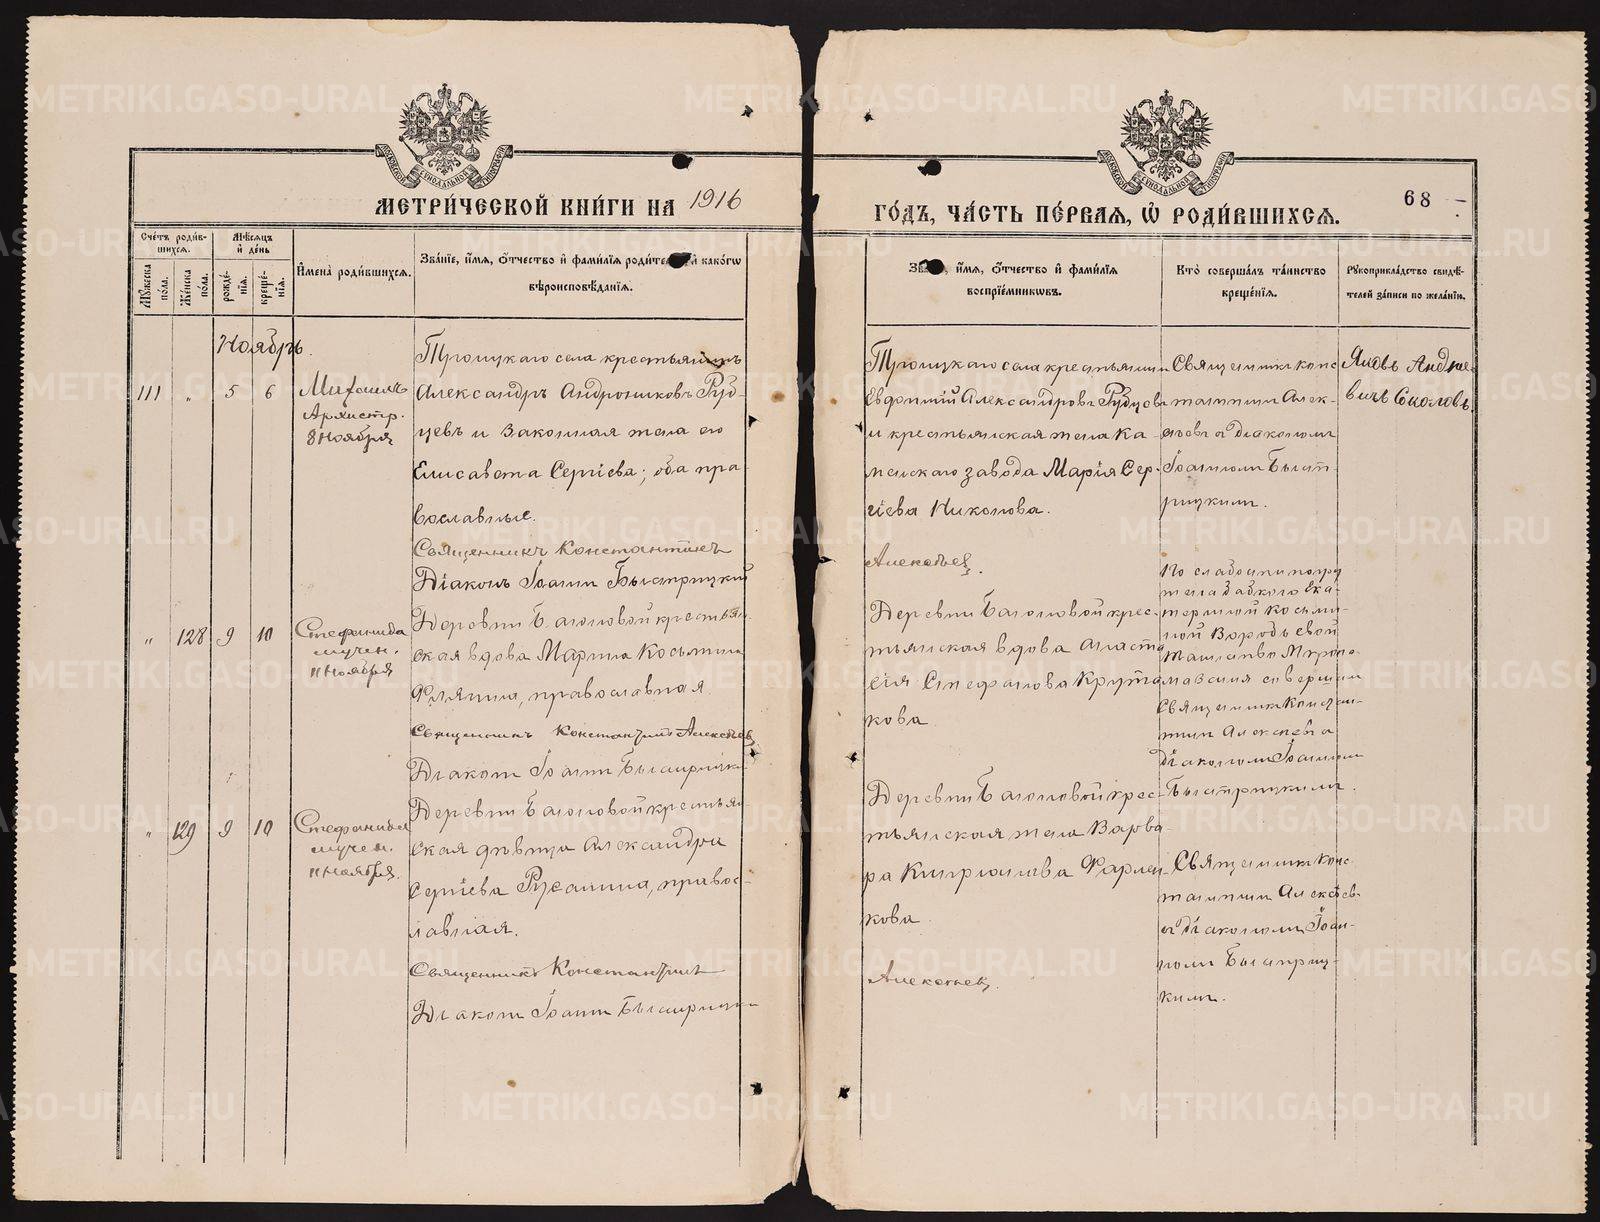 МЕТРИ́ЧЕСКОЙ КНИ́ГИ НА 1916
ГО́ДЪ, ЧА́СТЬ ПЕ́РВАЯ, Ѽ РОДИ́ВШИХСЯ.
68
Сче́тъ роди́в-
шихся.
Мѣ́сяцъ
и҆ де́нь
Мꙋ́жеска
по́ла.
Же́нска
по́ла.
рожде́-
нїя.
креще́-
нїя.
И҆мена̀ роди́вшихся.
Зва́нїе, и҆́мя, ѻ҆́тчество и҆ фами́лїя роди́те и҆ како́гѡ
вѣроисповѣ́данїя.
и҆́мя, ѻ҆́тчество и҆ фами́лїя
воспрїе́мникѡвъ.
Кто̀ соверша́лъ та́инство
креще́нїя.
Рꙋкоприкла́дство свидѣ́-
телей за́писи по жела́нїю.
Ноябрь.
111 „ 5 6
Михаилъ
Архистр.
8 Ноября
Троицкаго села крестьянинъ
Александръ Андрониковъ Руб-
цевъ и законная жена его
Елисавета Сергіева; оба пра-
вославные.
Священникъ Константинъ
Діаконъ Іоаннъ Быстрицкій
Троицкаго села крестьянинъ
Евфимій Александровъ Рубцевъ
и крестьянская жена Ка-
менскаго завода Марія Сер-
гіева Никонова.
Алексѣевъ.
Священникъ Конс-
тантинъ Алек-
сѣевъ съ діакономъ
Іоанномъ Быст-
рицкимъ.
Яковъ Андрее-
вичъ Соколовъ.
„ 128 9 10
Стефанида
мучен.
11 Ноября
Деревни Багоговой крестьян-
ская вдова Марина Косьмина
православная.
Священникъ Константинъ Алексѣевъ
Діаконъ Іоаннъ Быстрицкі
Деревни крес-
тьянская вдова Анаста-
сія Стефанова Крута-
кова.
По слабости погру-
жена бабкою Ека-
териной Косьми-
ной Воробьевой
Таинство Міропо-
мазанія совершилъ
Священникъ Констан-
тинъ Алексѣевъ съ
діакономъ Іоанномъ
Быстрицкимъ.
„ 129 9 10
Стефанида
мучен.
11 Ноября.
Деревни крестьян
ская дѣвица Александра
Сергіева Русанина, правос-
лавная.
Священникъ Константинъ
Діаконъ Іоаннъ Быстрицкі
Деревни крес-
тьянская жена Варва-
ра Кипріанова
кова.
Алексѣевъ.
Священникъ Конс-
тантинъ Алексѣевъ
съ діакономъ Іоан-
номъ Быстриц-
кимъ.
METRIKI.GASO-URAL.RU